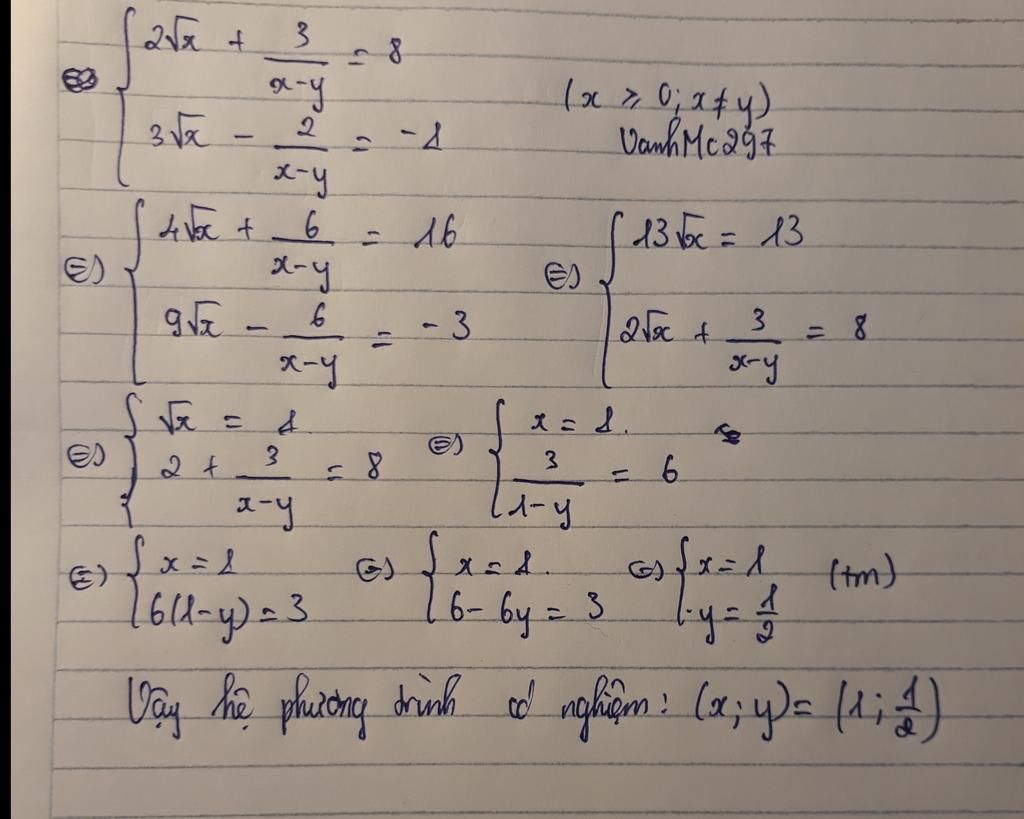 ⇔ { 2√x + 3/(x-y) = 8
3√x - 2/(x-y) = -1
(x ≥ 0; x ≠ y)
VanhMc297
⇔ { 4√x + 6/(x-y) = 16
9√x - 6/(x-y) = -3
⇔ { 13√x = 13
2√x + 3/(x-y) = 8
⇔ { √x = 1
2 + 3/(x-y) = 8
⇔ { x = 1.
3/(1-y) = 6
⇔ { x = 1
6(1-y) = 3
⇔ { x = 1.
6 - 6y = 3
⇔ { x = 1
y = 1/2
(tm)
Vậy hệ phương trình có nghiệm: (x; y) = (1; 1/2)